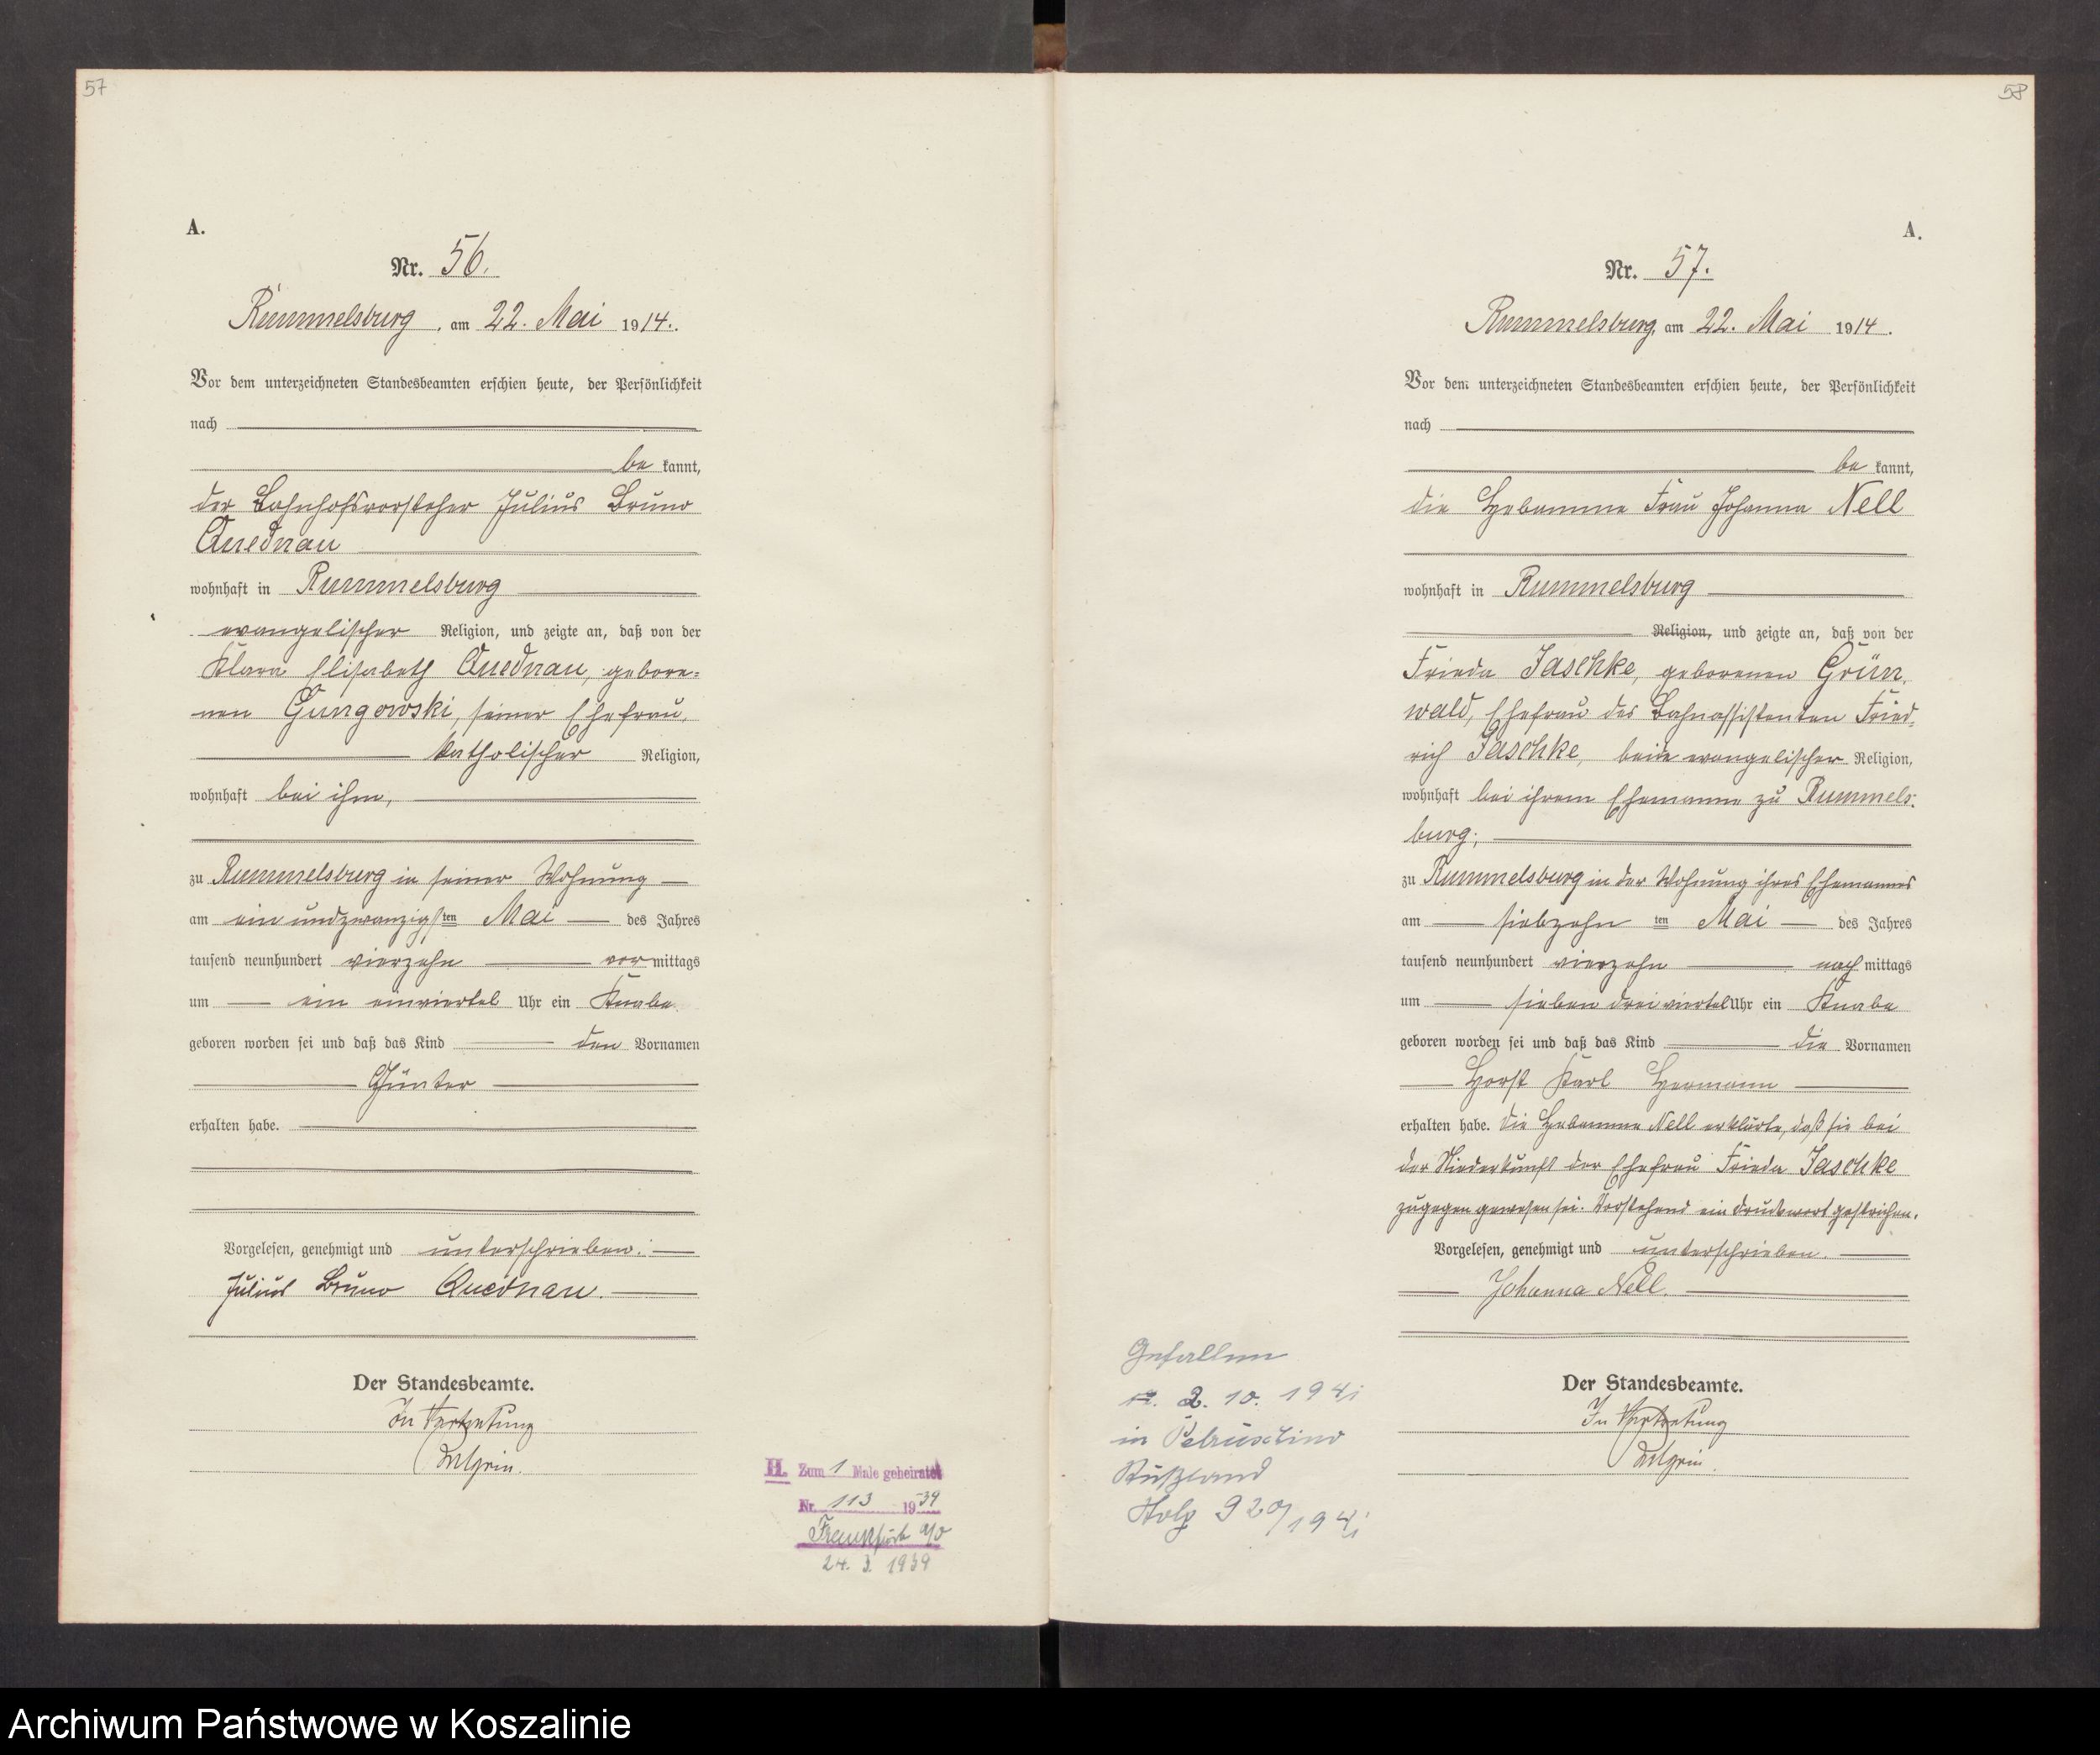 57
A.
Nr. 56.
Rummelsburg, am 22. Mai 1914.
Vor dem unterzeichneten Standesbeamten erschien heute, der Persönlichkeit
nach
be kannt,
der Bahnhofsvorsteher Julius Bruno
Quednau
wohnhaft in Rummelsburg
evangelischer Religion, und zeigte an, daß von der
Klara Elisabeth Quednau, gebore=
nen Gungowski, seiner Ehefrau,
katholischer Religion,
wohnhaft bei ihm,
zu Rummelsburg in seiner Wohnung
am ein und zwanzigsten Mai des Jahres
tausend neunhundert vierzehn vormittags
um ein einviertel Uhr ein Knabe
geboren worden sei und daß das Kind den Vornamen
Günter
erhalten habe.
Vorgelesen, genehmigt und unterschrieben.
Julius Bruno Quednau.
Der Standesbeamte.
In Vertretung
H. Zum 1 Male geheiratet
Nr. 113 1939
Frankfurt a/O
24. 3. 1939
58
A.
Nr. 57.
Rummelsburg, am 22. Mai 1914.
Vor dem unterzeichneten Standesbeamten erschien heute, der Persönlichkeit
nach
be kannt,
die Hebamme Frau Johanna Nell
wohnhaft in Rummelsburg
Religion, und zeigte an, daß von der
Frieda Jaschke, geborenen Grün,
wald, Ehefrau des Bahnassistenten Fried,
rich Jaschke, beide evangelischer Religion,
wohnhaft bei ihrem Ehemanne zu Rummels:
burg;
zu Rummelsburg in der Wohnung ihres Ehemannes
am siebzehn ten Mai des Jahres
tausend neunhundert vierzehn nachmittags
um sieben dreiviertel Uhr ein Knabe
geboren worden sei und daß das Kind die Vornamen
Horst Karl Hermann
erhalten habe. Die Hebamme Nell erklärte, daß sie bei
der Niederkunft der Ehefrau Frieda Jaschke
zugegen gewesen sei. Vorstehend ein Druckwort gestrichen.
Vorgelesen, genehmigt und unterschrieben.
Johanna Nell.
Der Standesbeamte.
In Vertretung
Gefallen
2. 10. 1941
in
Rußland
Stolp 920/1941
Archiwum Państwowe w Koszalinie